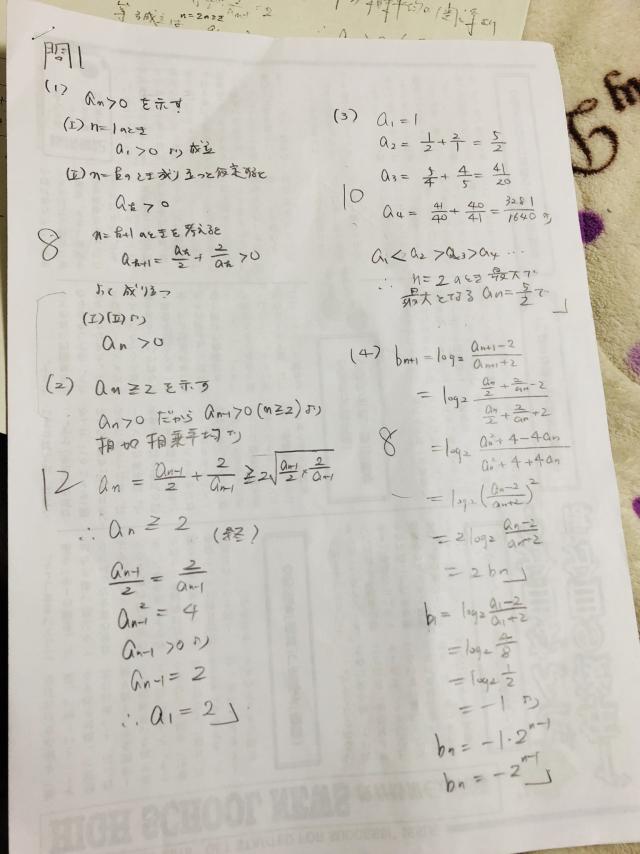 問1
(1)
an>0 を示す
(I) n=1のとき
a1>0 より 成立
(II) n=kのとき成り立つと仮定すると
ak>0
n=k+1のときを考えると
8
ak+1 = ak/2 + 2/ak > 0
よって成り立つ
(I)(II)より
an>0
(2) an≧2 を示す
an>0 だから an-1>0 (n≧2) より
相加相乗平均より
12
an = an-1/2 + 2/an-1 ≧ 2√(an-1/2 · 2/an-1)
∴ an ≧ 2
an-1/2 = 2/an-1
an-1² = 4
an-1>0 より
an-1 = 2
∴ a1=2
(3) a1=1
a2 = 1/2 + 2/1 = 5/2
a3 = 5/4 + 4/5 = 41/20
10
a4 = 41/40 + 40/41 = 3281/1640 より
a1<a2>a3>a4 …
∴ n=2のとき最大で
最大となる an=5/2で
(4) bn+1 = log2 (an+1-2)/(an+1+2)
= log2 (an/2 + 2/an - 2)/(an/2 + 2/an + 2)
8
= log2 (an²+4-4an)/(an²+4+4an)
= log2 ((an-2)/(an+2))²
= 2log2 (an-2)/(an+2)
= 2bn
b1 = log2 (a1-2)/(a1+2)
= log2 4/8
= log2 1/2
= -1 より
bn = -1·2^(n-1)
bn = -2^(n-1)
HIGH SCHOOL NEWS